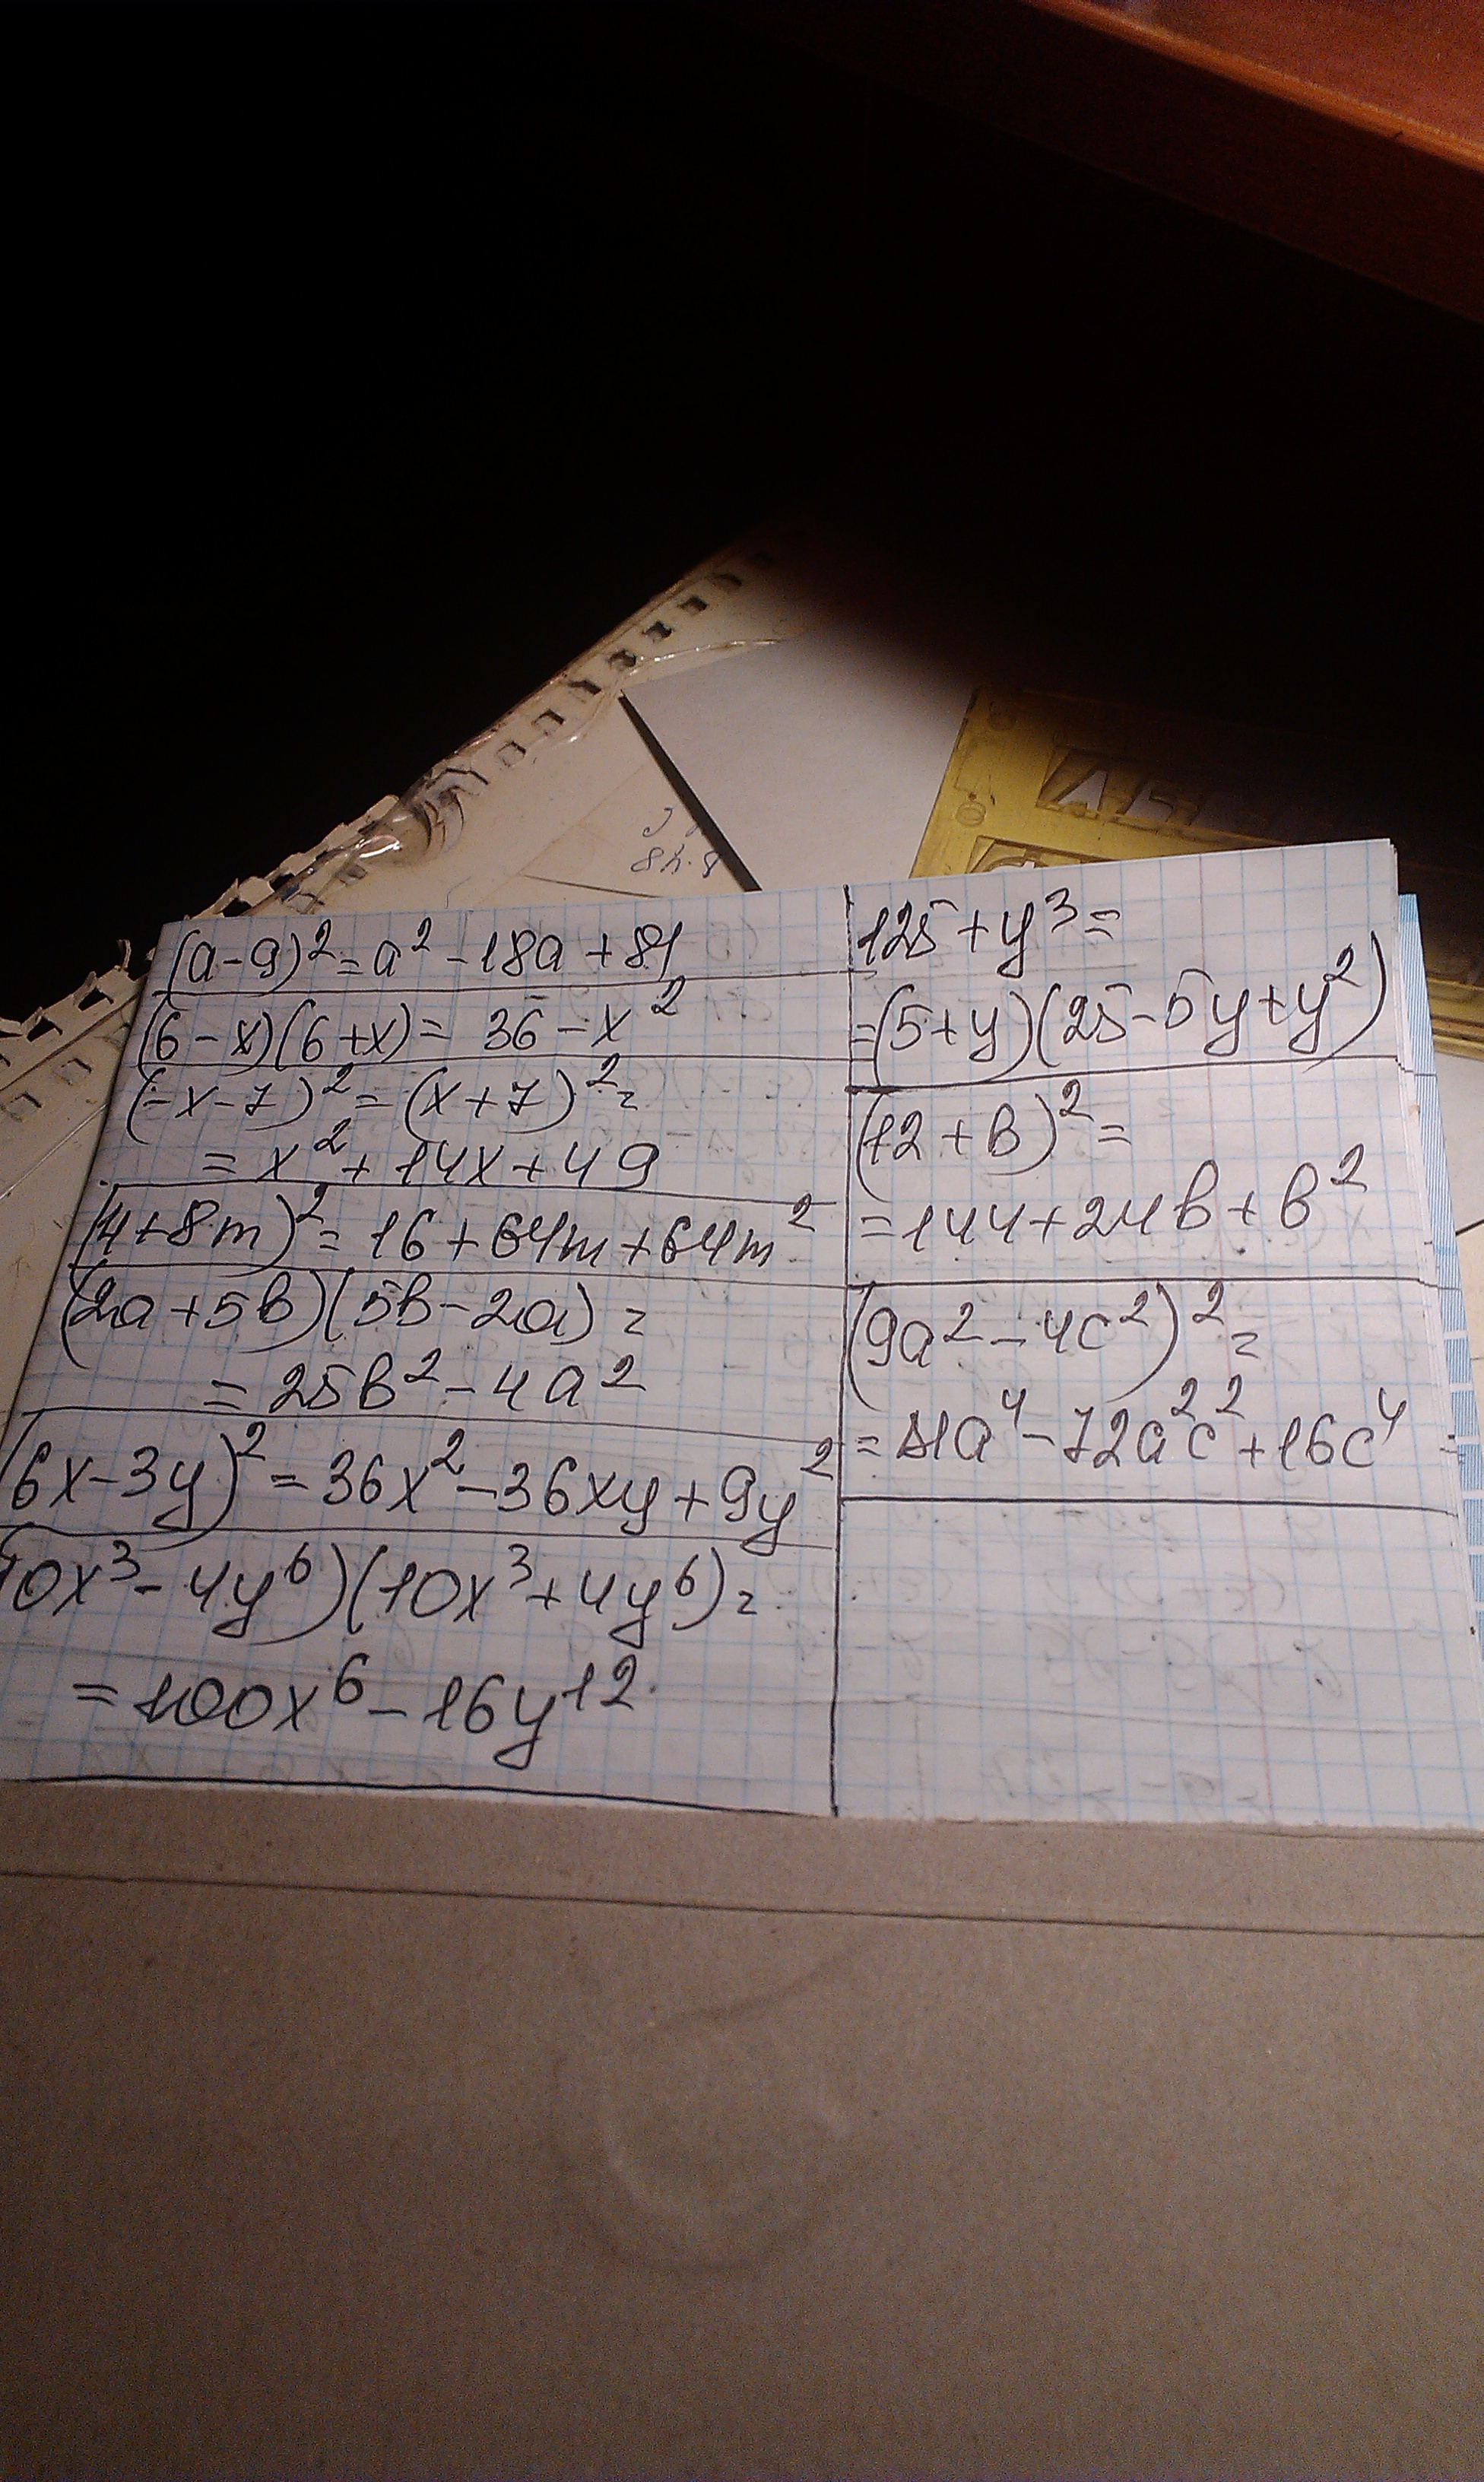 (a-9)² = a² - 18a + 81
(6-x)(6+x) = 36 - x²
(-x-7)² = (x+7)² =
= x² + 14x + 49
(4+8m)² = 16 + 64m + 64m²
(2a+5b)(5b-2a) =
= 25b² - 4a²
(6x-3y)² = 36x² - 36xy + 9y²
(10x³ - 4y⁶)(10x³ + 4y⁶) =
= 100x⁶ - 16y¹²
125 + y³ =
= (5+y)(25-5y+y²)
(12+b)² =
= 144 + 24b + b²
(9a² - 4c²)² =
= 81a⁴ - 72a²c² + 16c⁴